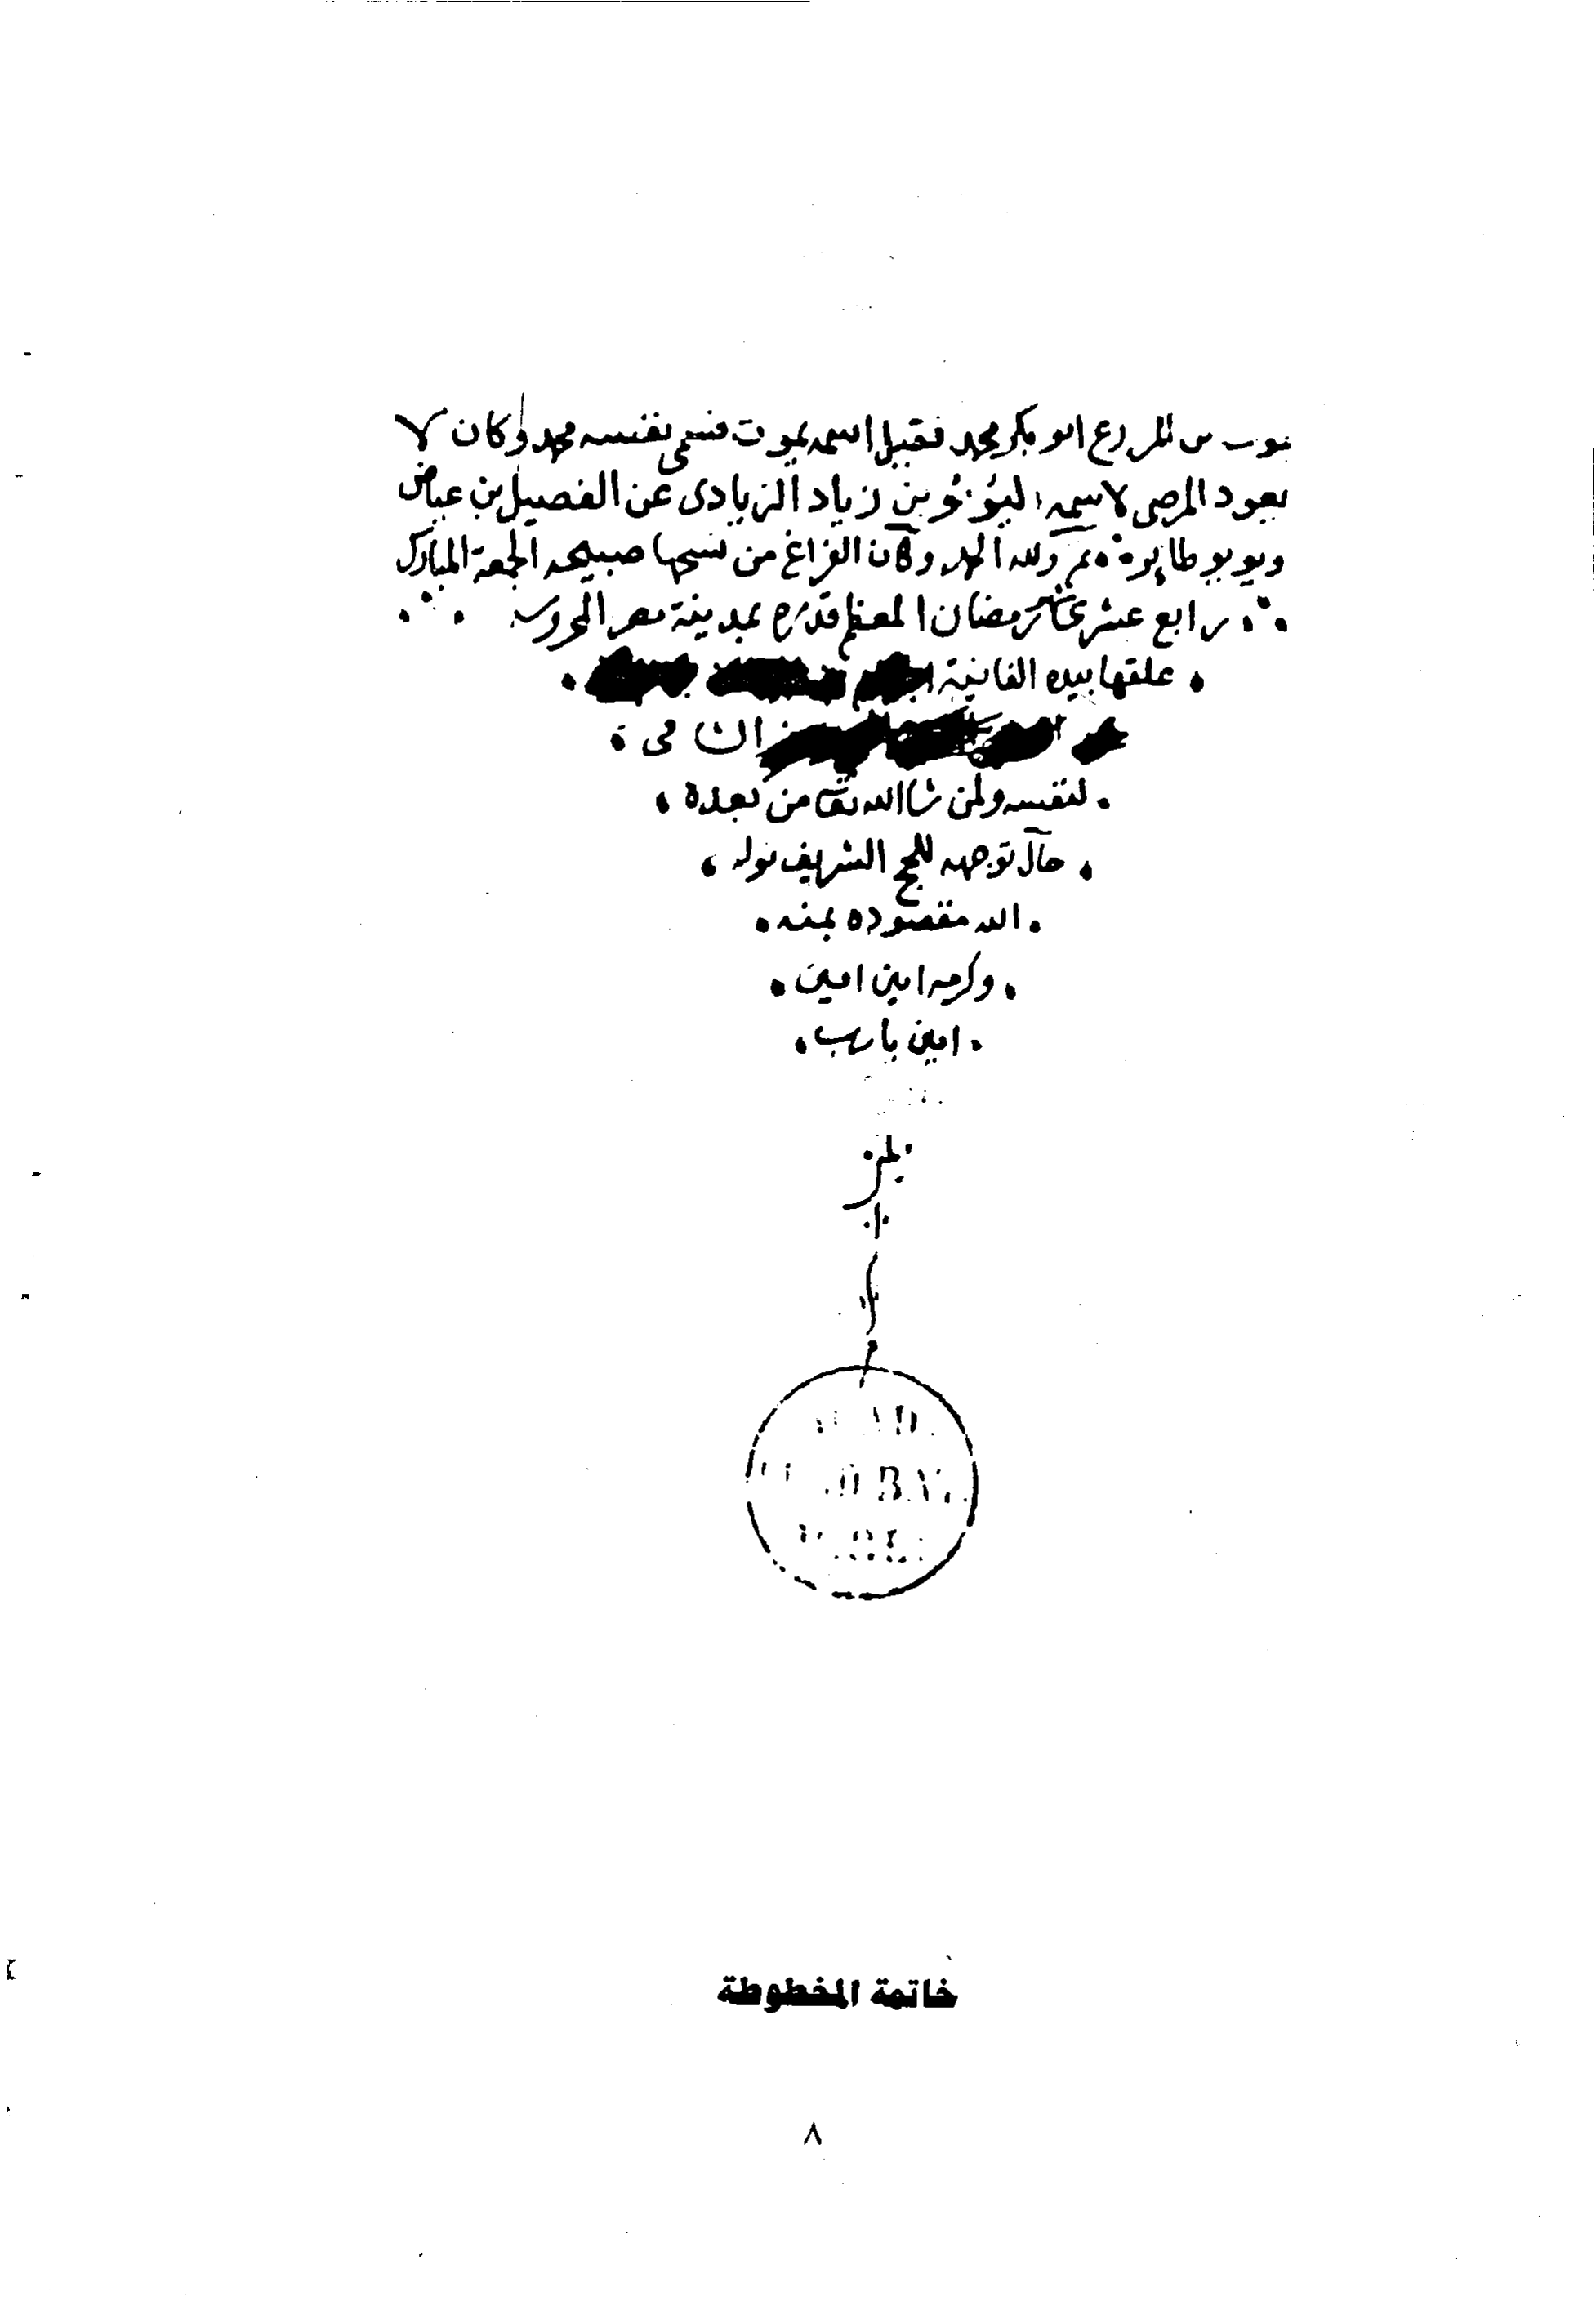 يموت بن المزرع ابو بكر محمد فقيل اسمه يموت فسمى نفسه محمد وكان لا
يعود المرضى لاسمه ليؤيؤ بن زياد الزيادى عن الفضيل بن عياض
ويويو طاير تم ولله الحمد وكان الفراغ من نسخها صبيحه الجمعة المبارك
رابع عشرى شهر رمضان المعظم قدره بمدينة مصر المحروسه
علقها بيده الفانية
لنفسه ولمن شا الله تعا من بعده
حال توجهه للحج الشريف نوله
الله مقصوده بمنه
وكرمه امين امين
امين يا رب
خاتمة المخطوطة
٨